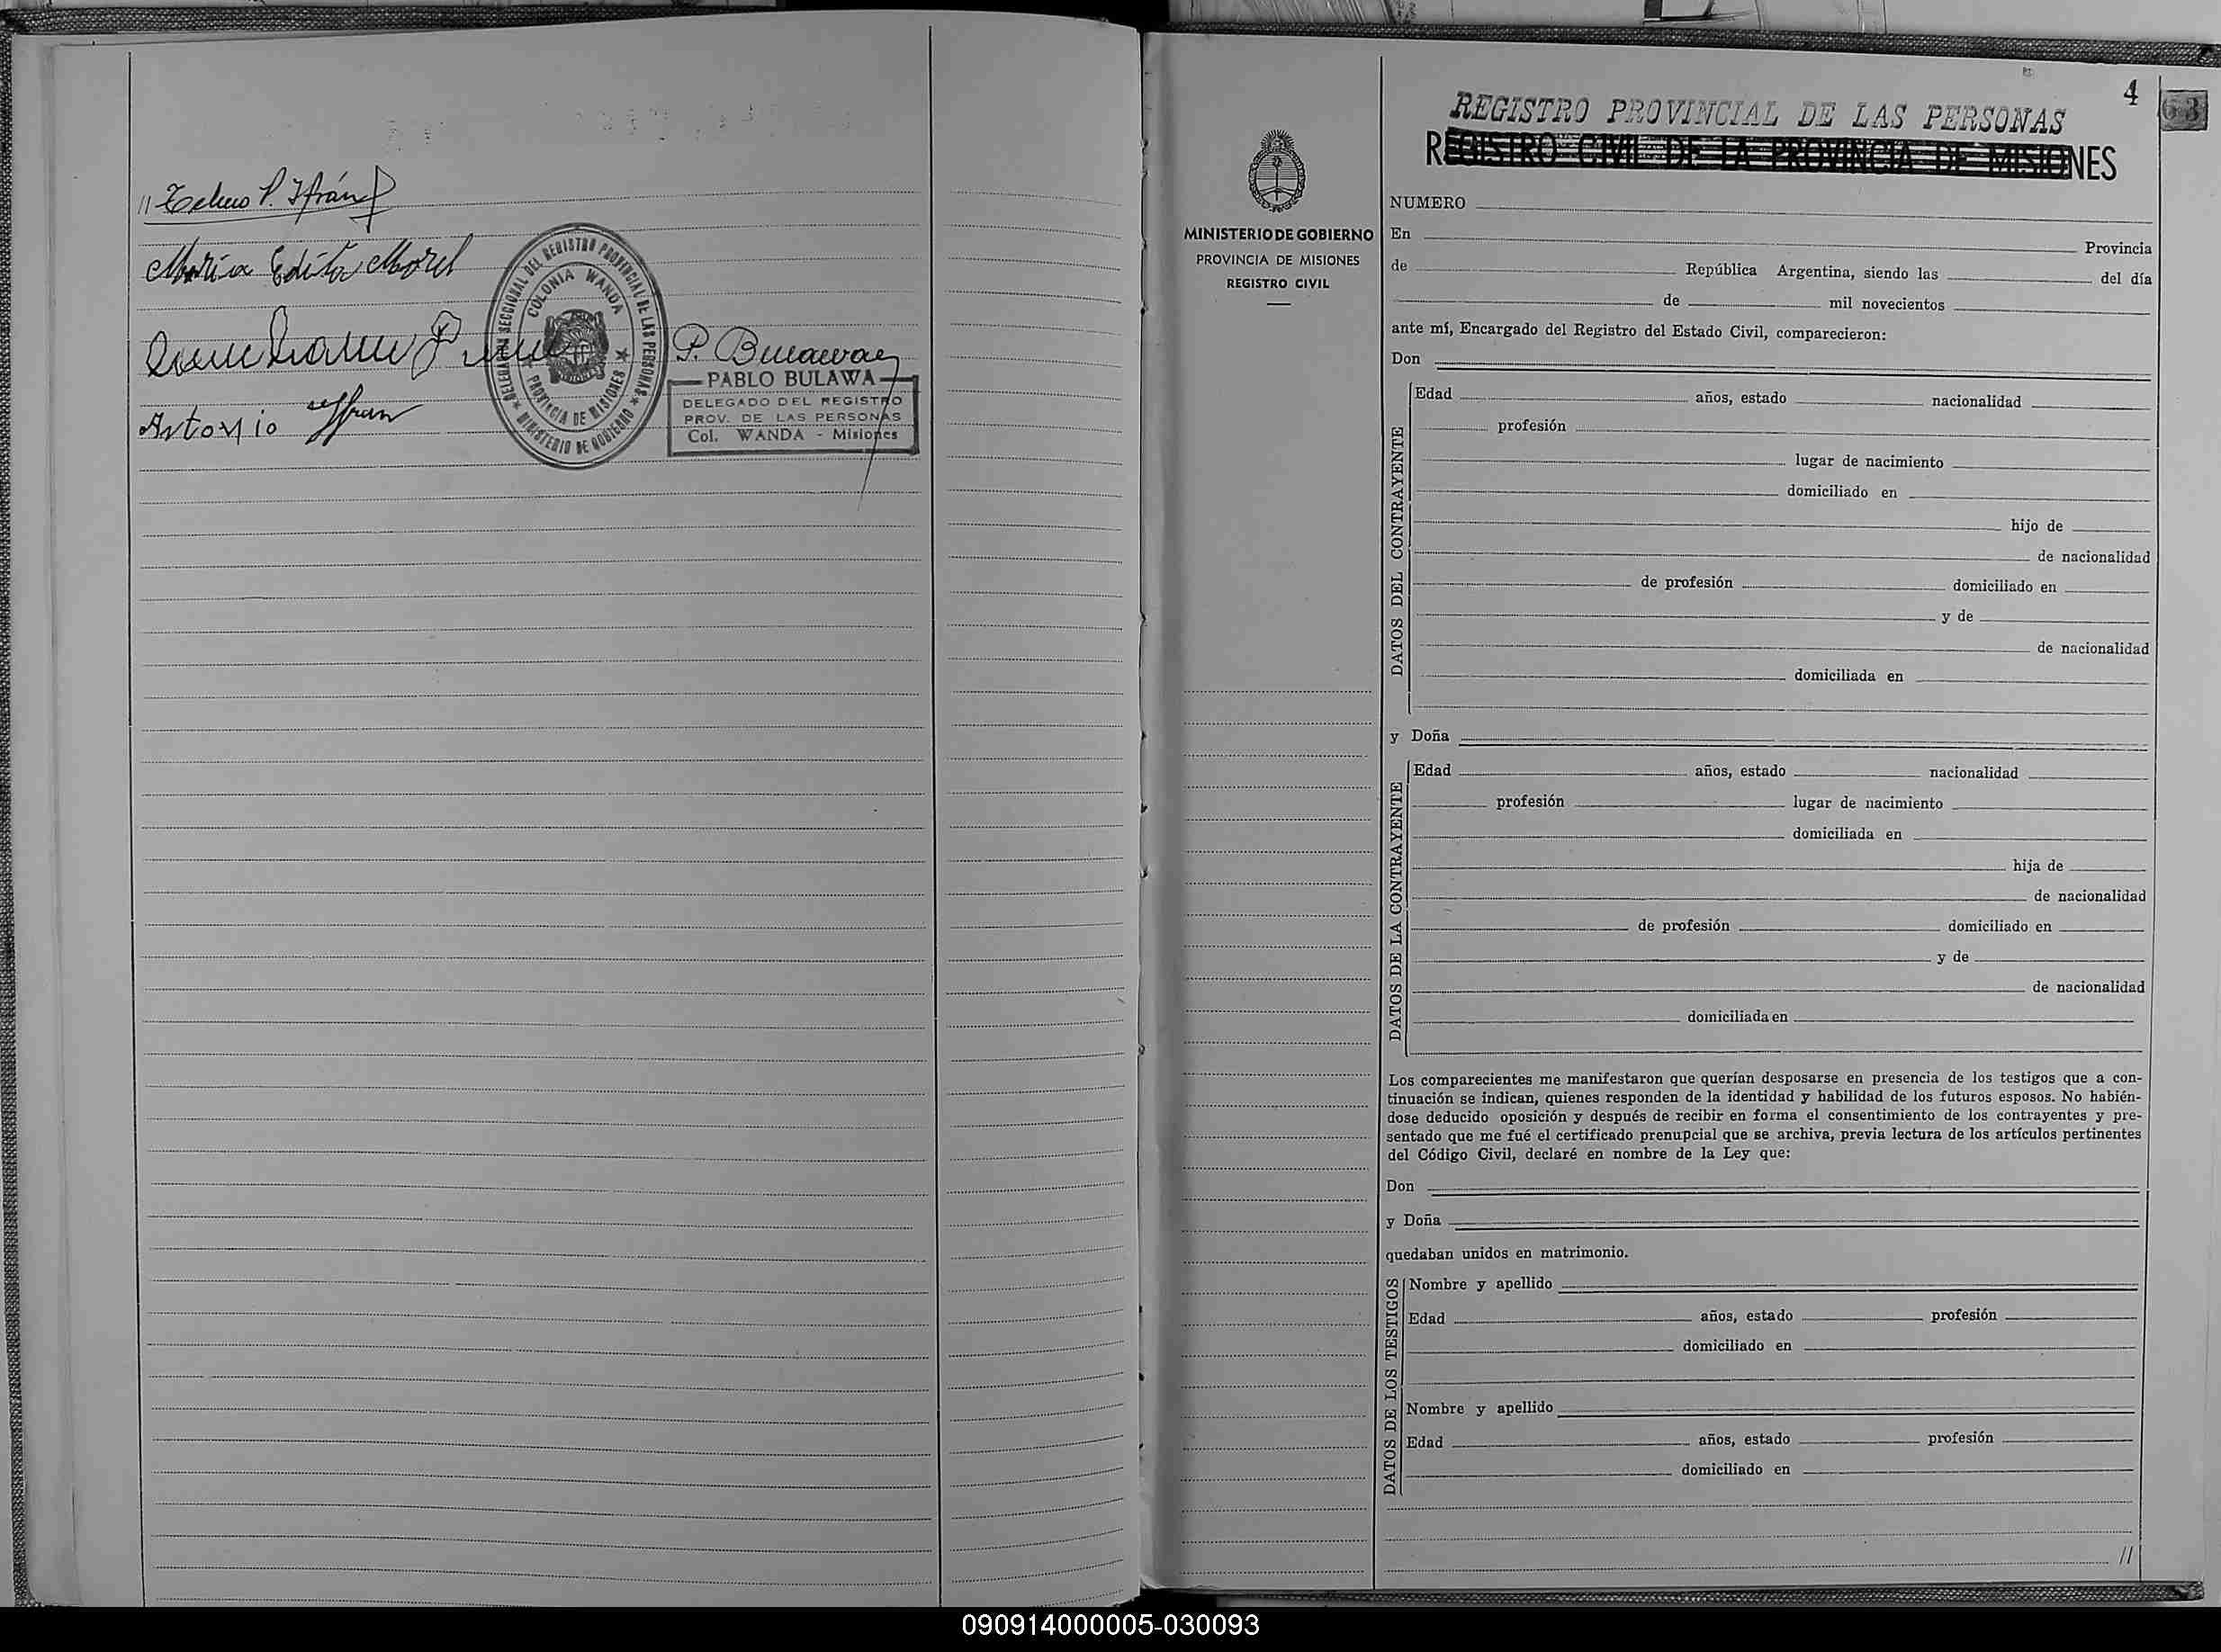 // Telmo P. Ifrán
Maria Edita Morel
Antonio Yfran
DELEGACION SECCIONAL DEL REGISTRO PROVINCIAL DE LAS PERSONAS
★ MINISTERIO DE GOBIERNO ★
COLONIA WANDA
★ PROVINCIA DE MISIONES ★
P. Bulawa
PABLO BULAWA
DELEGADO DEL REGISTRO
PROV. DE LAS PERSONAS
Col. WANDA - Misiones
4
63
REGISTRO PROVINCIAL DE LAS PERSONAS
REGISTRO CIVIL DE LA PROVINCIA DE MISIONES
MINISTERIO DE GOBIERNO
PROVINCIA DE MISIONES
REGISTRO CIVIL
NUMERO
En Provincia
de República Argentina, siendo las del día
de mil novecientos
ante mí, Encargado del Registro del Estado Civil, comparecieron:
Don
DATOS DEL CONTRAYENTE
Edad años, estado nacionalidad
profesión
lugar de nacimiento
domiciliado en
hijo de
de nacionalidad
de profesión domiciliado en
y de
de nacionalidad
domiciliada en
y Doña
DATOS DE LA CONTRAYENTE
Edad años, estado nacionalidad
profesión lugar de nacimiento
domiciliada en
hija de
de nacionalidad
de profesión domiciliado en
y de
de nacionalidad
domiciliada en
Los comparecientes me manifestaron que querían desposarse en presencia de los testigos que a con-
tinuación se indican, quienes responden de la identidad y habilidad de los futuros esposos. No habién-
dose deducido oposición y después de recibir en forma el consentimiento de los contrayentes y pre-
sentado que me fué el certificado prenupcial que se archiva, previa lectura de los artículos pertinentes
del Código Civil, declaré en nombre de la Ley que:
Don
y Doña
quedaban unidos en matrimonio.
DATOS DE LOS TESTIGOS
Nombre y apellido
Edad años, estado profesión
domiciliado en
Nombre y apellido
Edad años, estado profesión
domiciliado en
//
090914000005-030093